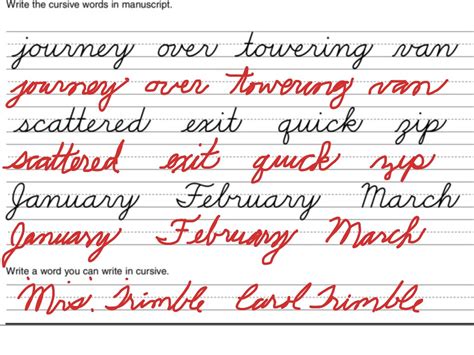 Write the cursive words in manuscript.
journey over towering van
journey over towering van
scattered exit quick zip
scattered exit quick zip
January February March
January February March
Write a word you can write in cursive.
Mrs. Trimble Carol Trimble